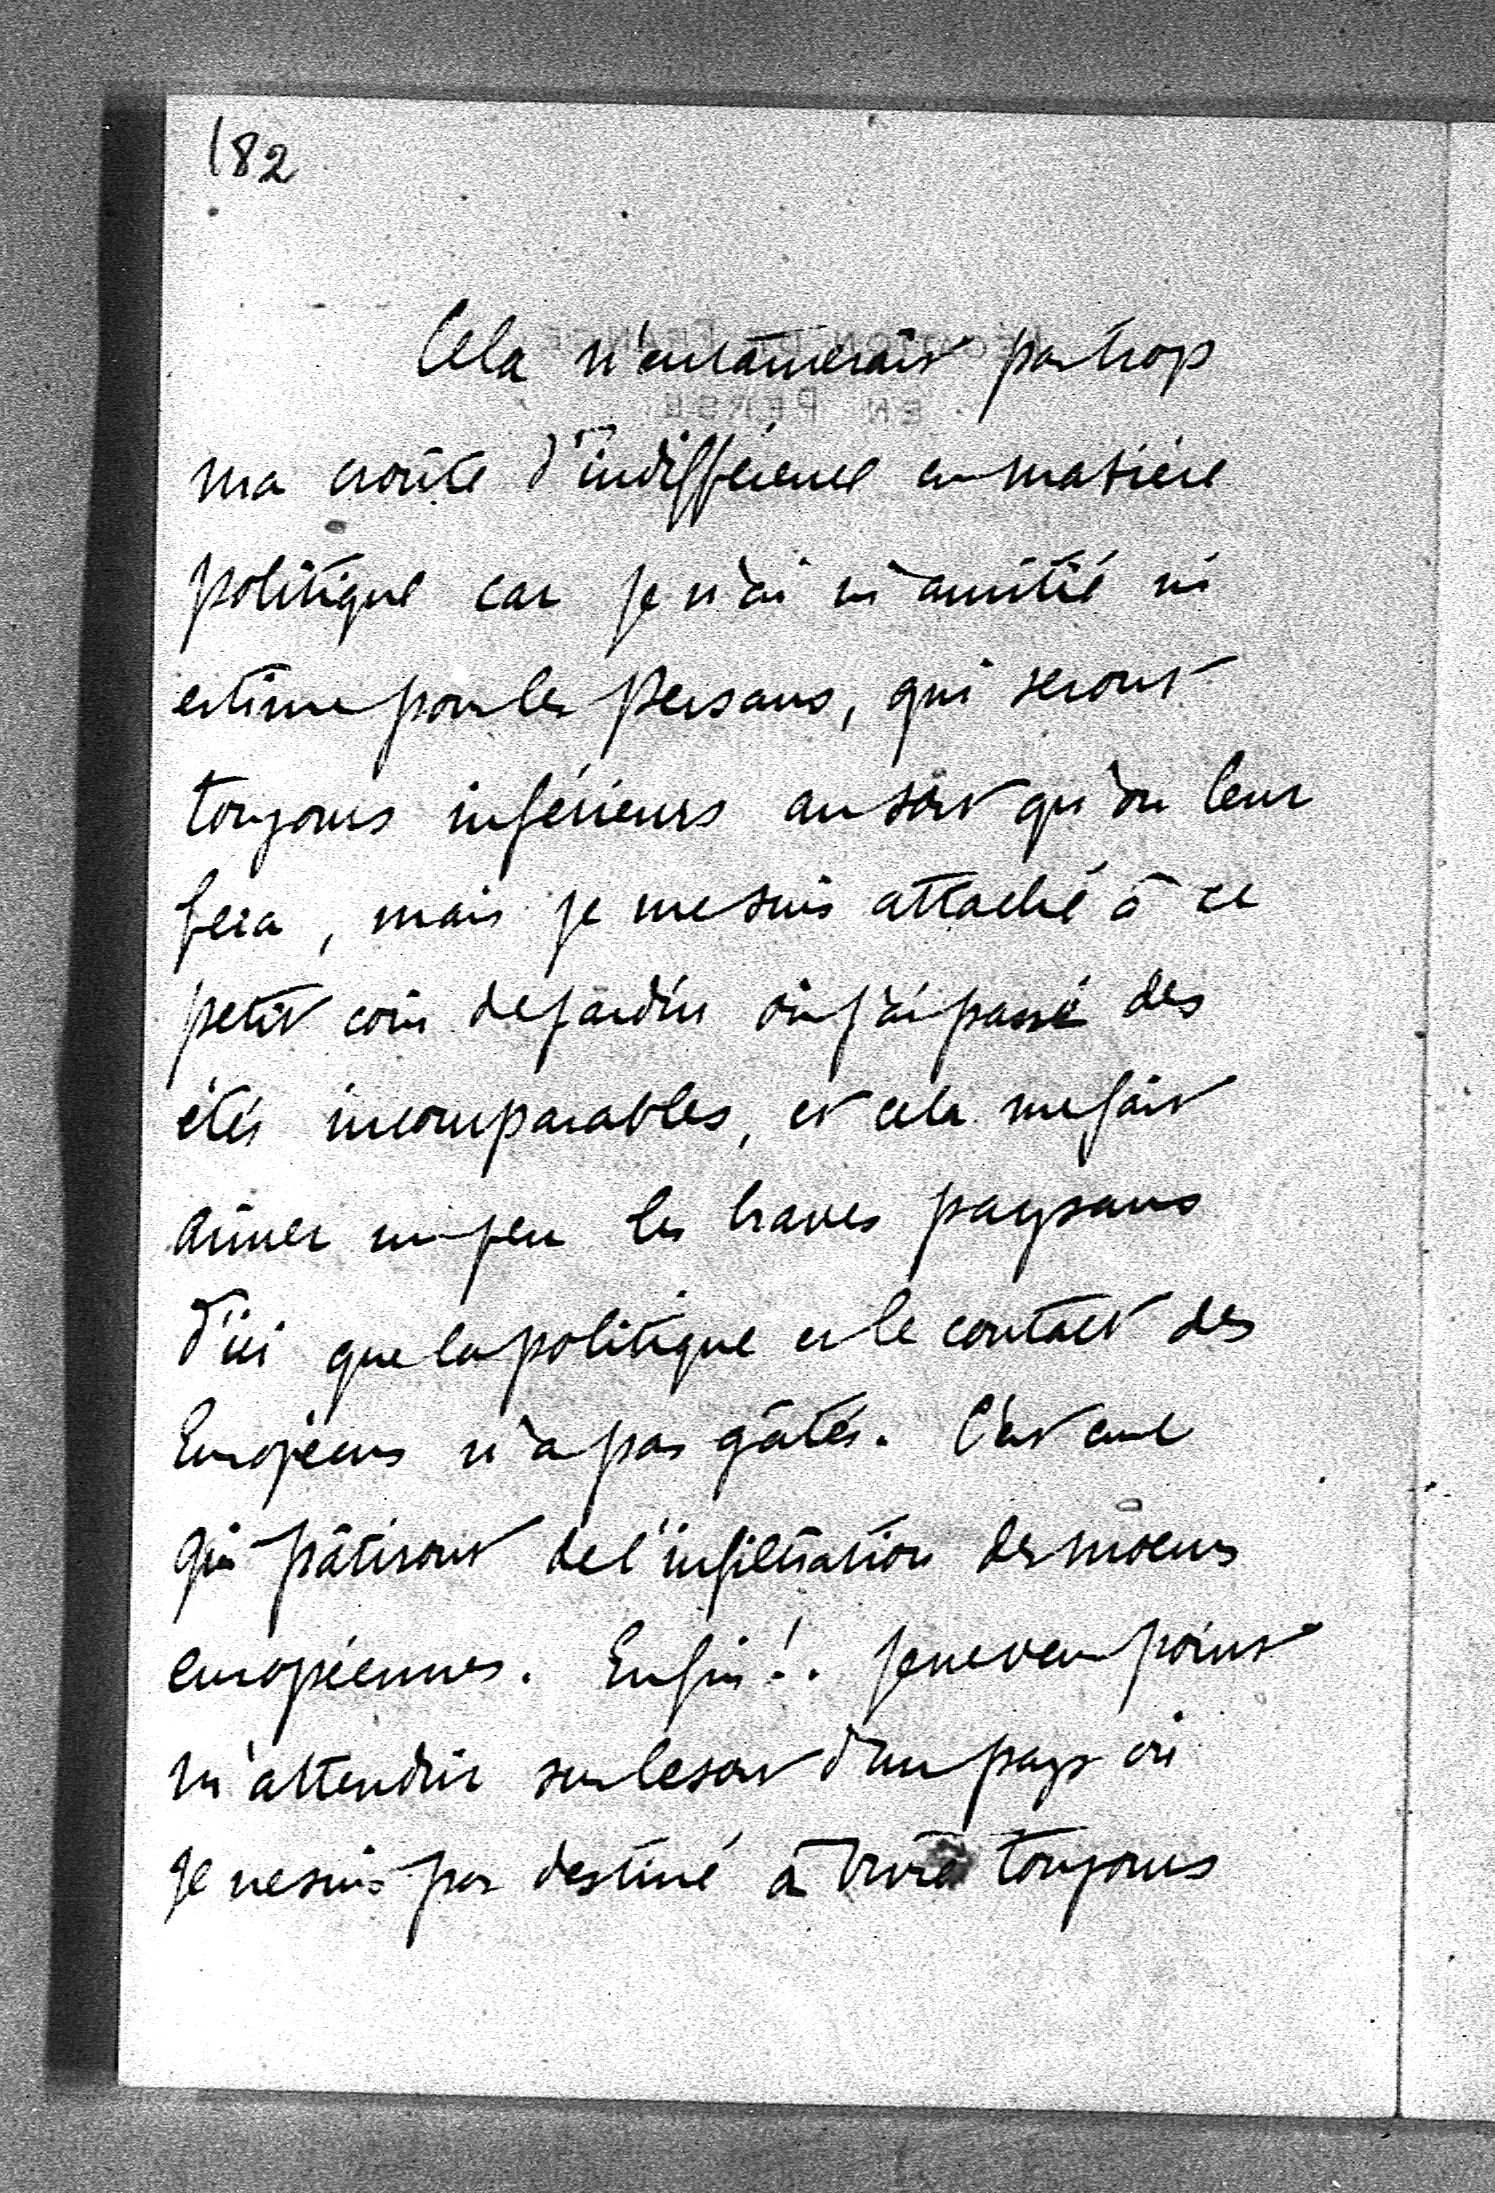 182
LÉGATION DE FRANCE
EN PERSE
Cela n'entamerait pas trop
ma croûte d'indifférence en matière
politique car je n'ai ni amitié ni
estime pour les Persans, qui seront
toujours inférieurs au sort qu'on leur
fera, mais je me suis attaché à ce
petit coin de jardin où j'ai passé des
étés incomparables, et cela me fait
aimer un peu les braves paysans
d'ici que la politique et le contact des
Européens n'a pas gâtés. C'est eux
qui pâtiront de l'infiltration des moeurs
européennes. Enfin!. Je ne veux point
m'attendrir sur le sort d'un pays où
je ne suis pas destiné à vivre toujours